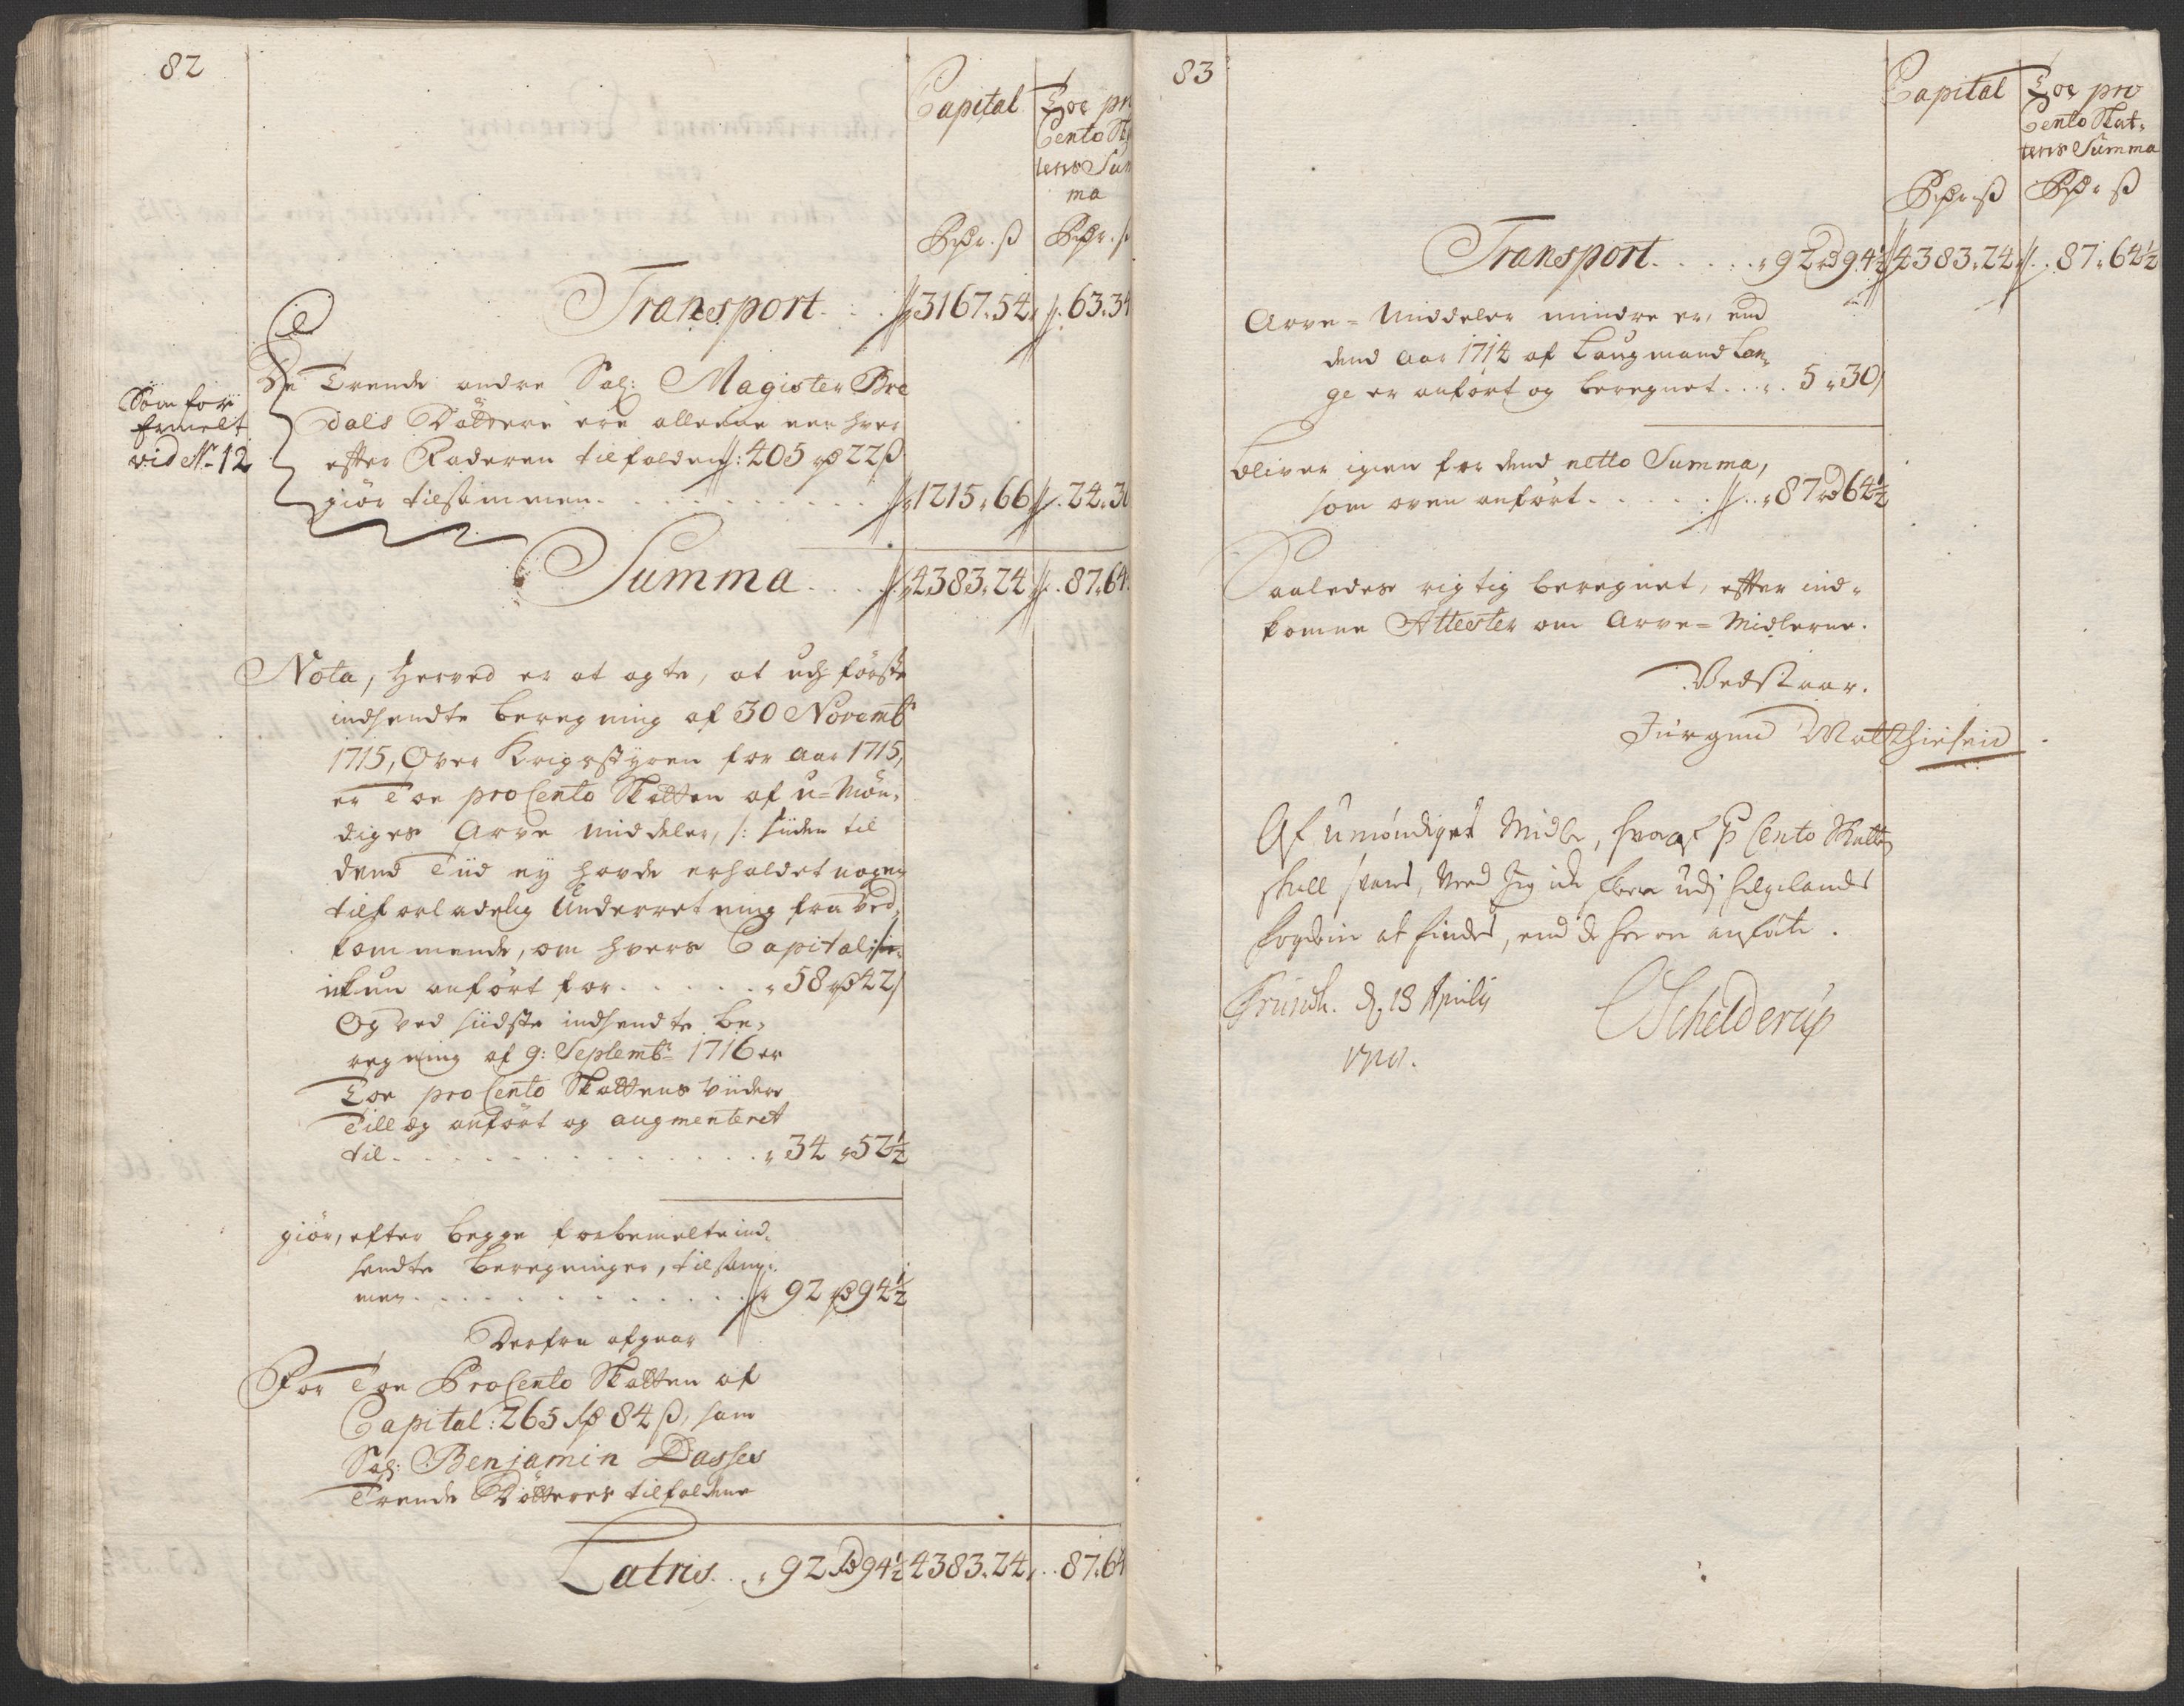 82
Capital
Toe pr
Cento Sk
tens Sum
ma
Rdr. ß
Rdr. ß
Transport . . . 3167. 54. 63. 34
De Trende andre Sal: Magister Bre
dals Döttere ere alleene een hver
efter Faderen tilfalden: 405 rd 22 ß
giör tilsammen . . . . . 1215. 66. 24. 30
Som for
ermelt
vid No 12
Summa . . . 4383. 24. 87. 64
Nota, herved er at agte, at udj förste
indsendte beregning af 30 Novembr
1715, Over Krigsstyren for Aar 1715,
er Toe pro Cento Skatten af u-Mön-
diges Arve Middeler, /: siiden til
dend Tiid ey havde erholdet nogen
tilforladelig Underretning fra Ved-
kommende, om hvers Capital :/
ikun anfört for . . . . . 58 rd 42 ß
Og ved siidste indsendte be-
regning af 9: Septembr 1716 er
Toe pro Cento Skattens viidere
Tillæg anfört og augmenteret
til . . . . . 34 . 52½
giör, efter begge forbemelte ind-
sendte beregninger, tilsam-
men . . . . . 92 rd 94½
Derfra afgaar
For Toe ProCento Skatten af
Capital: 265 rd 84 ß, som
Sal: Benjamin Dasses
Trende Dötteres tilfaldene
Latris . . 92 rd 94½ 4383. 24. . . 87. 64
83
Capital
Toe pro
Cento Skat-
tens Summa
Rdr ß
Rdr ß
Transport . . . . . 92 rd 94½ 4383. 24. . 87. 64½
Arve-Middeler mindre er, end
dend Aar 1714 af Laugmand Lan-
ge er anfört og beregnet . . . 5. 30
bliver igien for dend netto Summa,
som oven anfört . . . . . 87 rd 64½
Saaledes rigtig beregnet, efter ind-
komne Attester om Arve-Midlerne.
Vedstaar.
Jürgen Matthiesen
Af umöndiges Midler, hvoraf pr Cento Skatten
skall svares, veed Jeg icke flere udj Helgelands
fogderie at findes, end de her er anförte.
Trundh. d. 13 Aprilis
CSchelderup